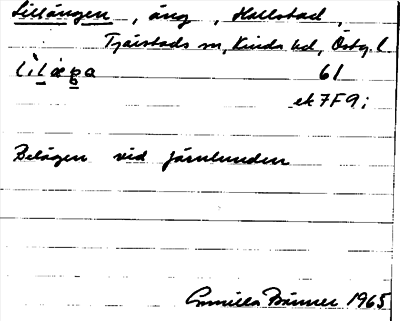 Lillängen, äng, Hallstad,
Tjärstads sn, Kinda hd, Östg. l
61
ek 7F9i
Belägen vid Järnlunden
Gunilla Bärmer 1965